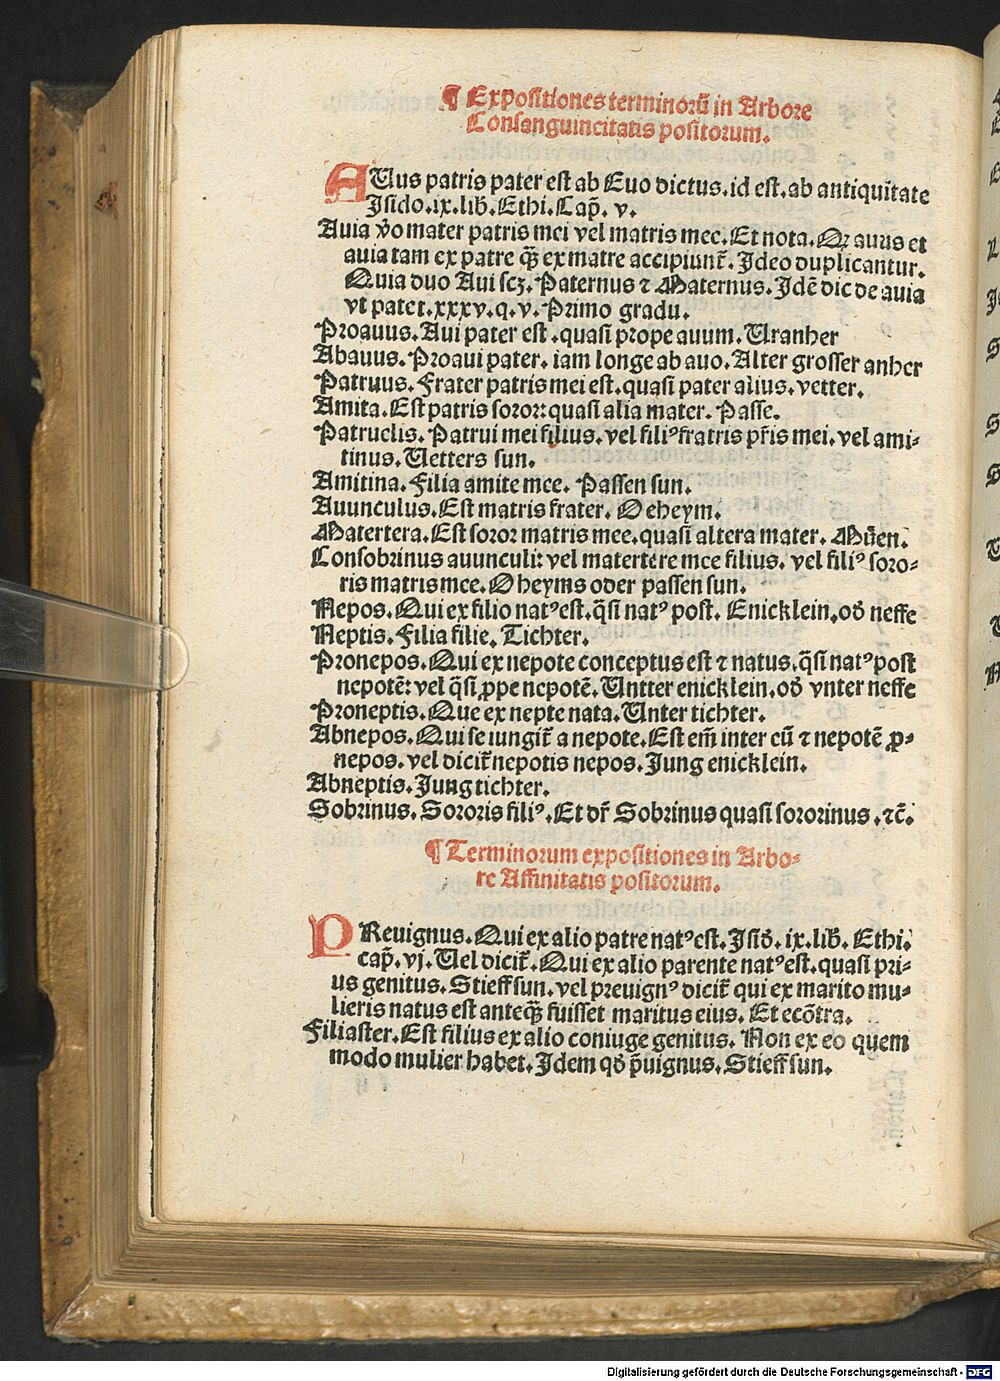 ¶ Expositiones terminorū in Arbore
Consanguineitatis positorum.
AUus patris pater est ab Euo dictus. id est. ab antiquitate
Isido. ix. lib̄. Ethi. Cap̄. v.
Auia v̄o mater patris mei vel matris mee. Et nota. Qꝛ auus et
auia tam ex patre q̄ꝫ ex matre accipiunt̄. Ideo duplicantur.
Quia duo Aui scꝫ. Paternus ⁊ Maternus. Idē dic de auia
vt patet. xxxv. q. v. Primo gradu.
Proauus. Aui pater est. quasi prope auum. Uranher
Abauus. Proaui pater. iam longe ab auo. Alter grosser anher
Patruus. Frater patris mei est. quasi pater alius. vetter.
Amita. Est patris soror: quasi alia mater. Passe.
Patruelis. Patrui mei filius. vel filiꝰ fratris pr̄is mei. vel ami-
tinus. Uetters sun.
Amitina. Filia amite mee. Passen sun.
Auunculus. Est matris frater. Oeheym.
Matertera. Est soror matris mee. quasi altera mater. Mūen.
Consobrinus auunculi: vel matertere mee filius. vel filiꝰ soro-
ris matris mee. Oheyms oder passen sun.
Nepos. Qui ex filio natꝰ est. q̄si natꝰ post. Enicklein. od̄ neffe
Neptis. Filia filie. Tichter.
Pronepos. Qui ex nepote conceptus est ⁊ natus. q̄si natꝰ post
nepotē: vel q̄si ꝓpe nepotē. Untter enicklein. od̄ vnter neffe
Proneptis. Que ex nepte nata. Unter tichter.
Abnepos. Qui se iungit̄ a nepote. Est em̄ inter eū ⁊ nepotē ꝓ-
nepos. vel dicit̄ nepotis nepos. Jung enicklein.
Abneptis. Jung tichter.
Sobrinus. Sororis filiꝰ. Et dr̄ Sobrinus quasi sororinus. ⁊c̄.
¶ Terminorum expositiones in Arbo-
re Affinitatis positorum.
PReuignus. Qui ex alio patre natꝰ est. Isid̄. ix. lib̄. Ethi.
cap̄. vj. Uel dicit̄. Qui ex alio parente natꝰ est. quasi pri-
us genitus. Stieffsun. vel preuignꝰ dicit̄ qui ex marito mu-
lieris natus est anteq̄ꝫ fuisset maritus eius. Et ecōtra.
Filiaster. Est filius ex alio coniuge genitus. Non ex eo quem
modo mulier habet. Idem qd̄ p̄uignus. Stieffsun.
Digitalisierung gefördert durch die Deutsche Forschungsgemeinschaft - DFG